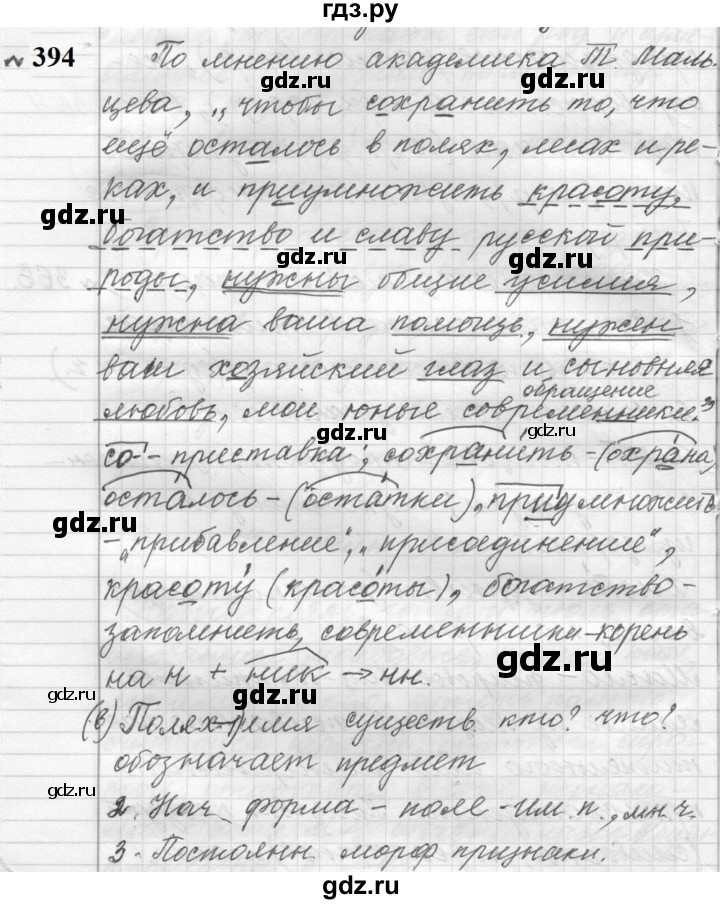 гдз.ру
№ 394 По мнению академика Т Маль-
gdz.ru gdz.ru
цева, „чтобы сохранить то, что
ещё осталось в полях, лесах и ре-
ках, и приумножить красоту,
gdz.ru
богатство и славу русской при-
gdz.ru gdz.ru
роды, нужны общие усилия,
нужна ваша помощь, нужен
ваш хозяйский глаз и сыновняя
обращение
любовь, мои юные современники."
со- – приставка; сохранить – (охрана)
осталось – (остатки), приумножить
gdz.ru gdz.ru
– „прибавление", „присоединение",
красоту (красоты), богатство –
запомнить, современники – корень
gdz.ru
на н + ник → нн.
gdz.ru gdz.ru
(6) Полях – 1) имя существ кто? что?
обозначает предмет
2. Нач. форма – поле – им. п., мн. ч.
gdz.ru gdz.ru
3. Постоянн морф признаки.
gdz.ru